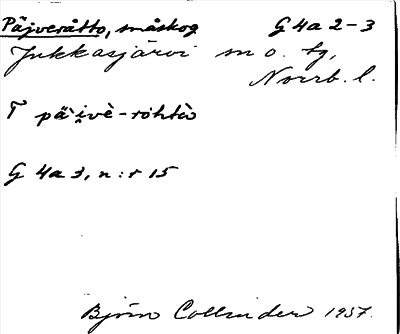 Päjveråtto, småskog G 4a 2-3
Jukkasjärvi sn o. tg,
Norrb. l.
T päi̯vè-ròhtò
G 4a 3, n:r 15
Björn Collinder 1937.